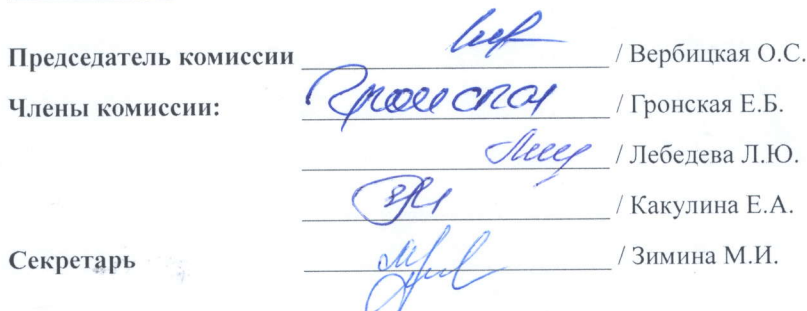 Председатель комиссии / Вербицкая О.С.
Члены комиссии: / Гронская Е.Б.
/ Лебедева Л.Ю.
/ Какулина Е.А.
Секретарь / Зимина М.И.